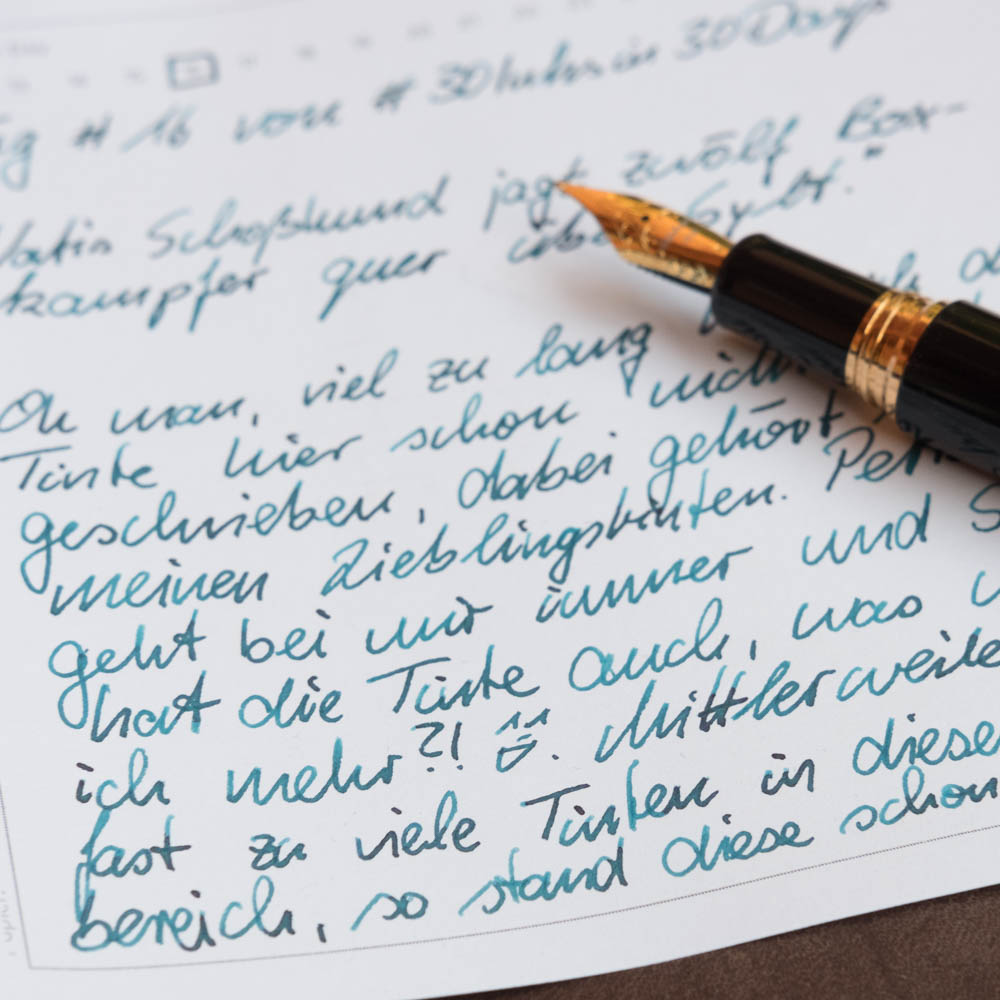 # 16 von # 30Inks in 30Days
Schoßhund jagt zwölf Box-
kämpfer quer über Sylt."
Oh man, viel zu lang
Tinte hier schon nicht
geschrieben, dabei gehört
meinen Lieblingstinten.
geht bei mir immer und
hat die Tinte auch, was
ich mehr?! Mittlerweile
fast zu viele Tinten in diesem
bereich, so stand diese schon